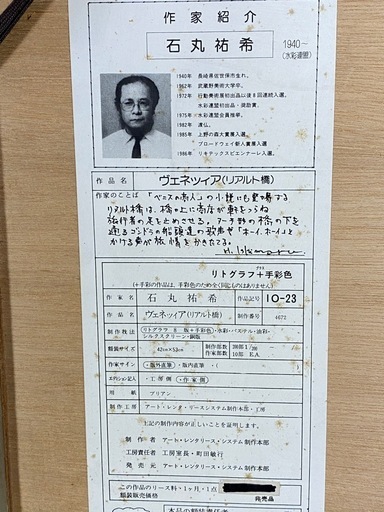 作家紹介
石丸祐希 1940~
(水彩連盟)
1940年 長崎県佐世保市生れ。
1962年 武蔵野美術大学卒。
1972年 行動美術展初出品以後8回連続入選。
水彩連盟初出品・奨励賞。
1975年 水彩連盟会員推挙。
1982年 渡仏。
1985年 上野の森大賞展入選
ブロードウェイ新人賞展入選
1986年 リキテックスビエンナーレ入選。
作品名 ヴェネツィア(リアルト橋)
作家のことば 「ベニスの商人」の小説にも登場する
リアルト橋は、橋の上に商店が軒をつらね
旅行者の足を止めさせる。アーチ型の橋の下を
通るゴンドラの船頭達の歌声や「ホーイ、ホーイ」と
かける声が旅情をかきたてる。
リトグラフ+手彩色
(+手彩の作品は、手彩色のため全く同じものはありません)
作家名 石丸祐希 作品記号 10-23
作品名 ヴェネツィア(リアルト橋) 制作番号 4672
制作技法 リトグラフ 8版+手彩色・水彩・パステル・油彩・
シルクスクリーン・銅版
額装サイズ 42cm×53cm 制作部数 300部 1/300
作家部数 10部 E.A
作家サイン ・版外直筆・版内直筆・( )
エディション記入 ・工房側・作家側
用紙 ブリアン
制作工房 アート・レンタ・リースシステム制作本部・工房
上記の制作内容が正しいことを証明します。
制作者 アート・レンタリース・システム制作本部
工房責任者 工房室長・町田敏行
発売元 アート・レンタリース・システム制作本部
この作品のリース料・1ヶ月・1点
額装販売価格 発売品
本品の額装責任者